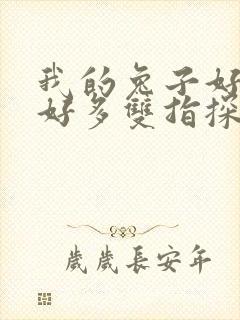 我的兔子好
好多雙指探
歲歲長安年